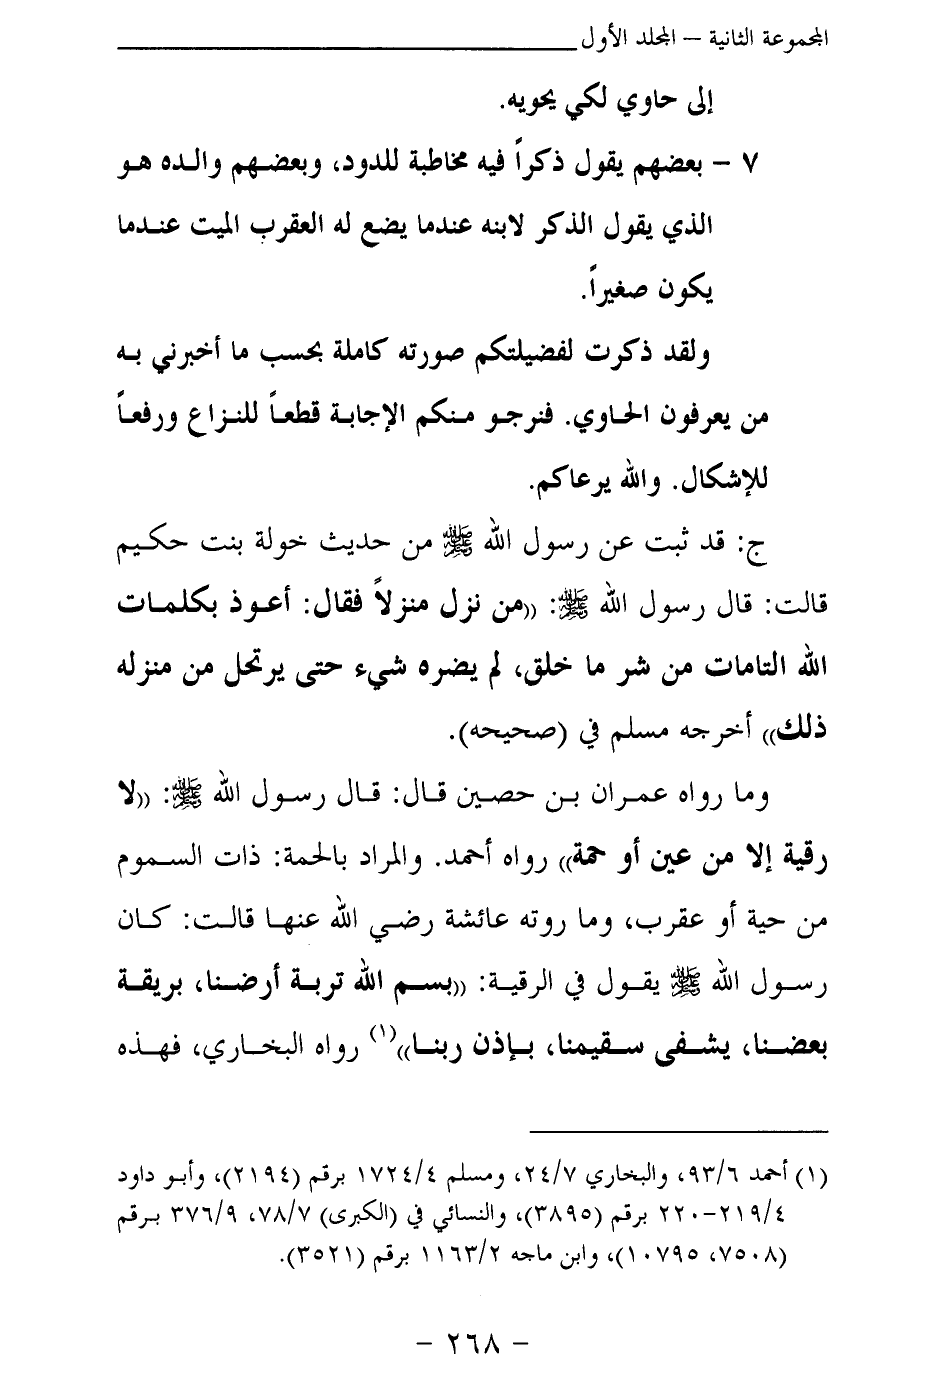 المجموعة الثانية – المجلد الأول
إلى حاوي لكي يحويه.
٧ – بعضهم يقول ذكراً فيه مخاطبة للدود، وبعضهم والده هو
الذي يقول الذكر لابنه عندما يضع له العقرب الميت عندما
يكون صغيراً.
ولقد ذكرت لفضيلتكم صورته كاملة بحسب ما أخبرني به
من يعرفون الحاوي. فنرجو منكم الإجابة قطعاً للنزاع ورفعاً
للإشكال. والله يرعاكم.
ج: قد ثبت عن رسول الله ﷺ من حديث خولة بنت حكيم
قالت: قال رسول الله ﷺ: ((من نزل منزلاً فقال: أعوذ بكلمات
الله التامات من شر ما خلق، لم يضره شيء حتى يرتحل من منزله
ذلك)) أخرجه مسلم في (صحيحه).
وما رواه عمران بن حصين قال: قال رسول الله ﷺ: ((لا
رقية إلا من عين أو حمة)) رواه أحمد. والمراد بالحمة: ذات السموم
من حية أو عقرب، وما روته عائشة رضي الله عنها قالت: كان
رسول الله ﷺ يقول في الرقية: ((بسم الله تربة أرضنا، بريقة
بعضنا، يشفى سقيمنا، بإذن ربنا))(١) رواه البخاري، فهذه
(١) أحمد ٩٣/٦، والبخاري ٢٤/٧، ومسلم ١٧٢٤/٤ برقم (٢١٩٤)، وأبو داود
٢١٩/٤-٢٢٠ برقم (٣٨٩٥)، والنسائي في (الكبرى) ٧٨/٧، ٣٧٦/٩ برقم
(٧٥٠٨، ١٠٧٩٥)، وابن ماجه ١١٦٣/٢ برقم (٣٥٢١).
– ٢٦٨ –